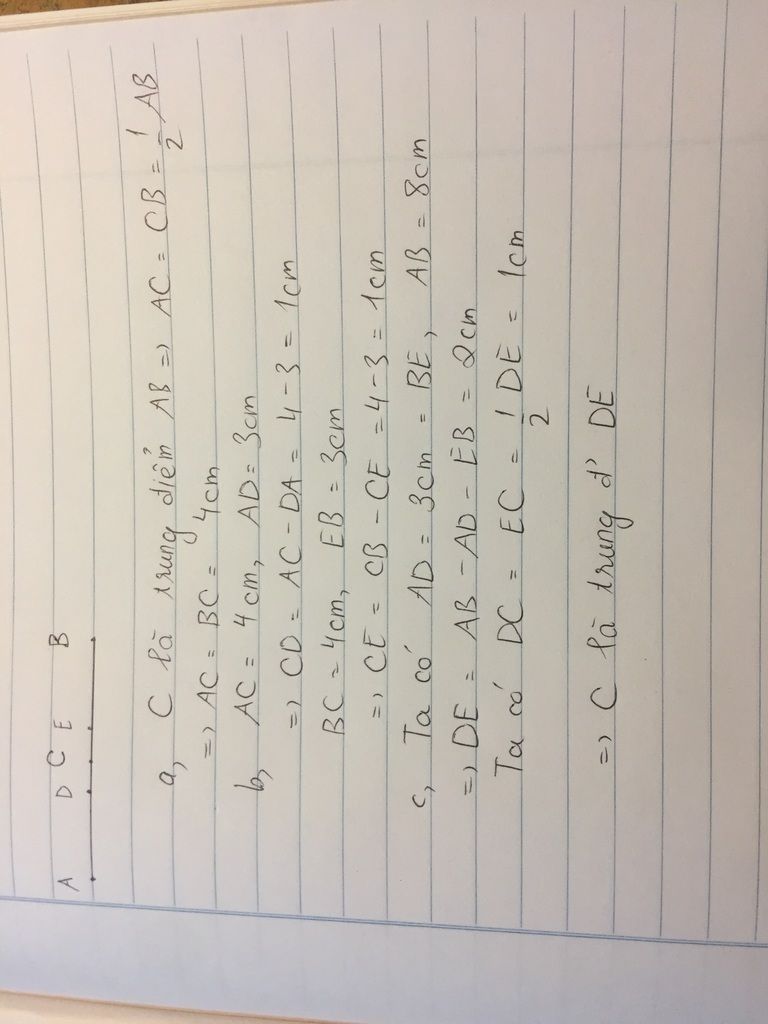 A D C E B
a, C là trung điểm AB => AC = CB = 1/2 AB
=> AC = BC = 4cm
b, AC = 4cm, AD = 3cm
=> CD = AC - DA = 4 - 3 = 1cm
BC = 4cm, EB = 3cm
=> CE = CB - CE = 4 - 3 = 1cm
c, Ta có AD = 3cm = BE, AB = 8cm
=> DE = AB - AD - EB = 2cm
Ta có DC = EC = 1/2 DE = 1cm
=> C là trung đ' DE